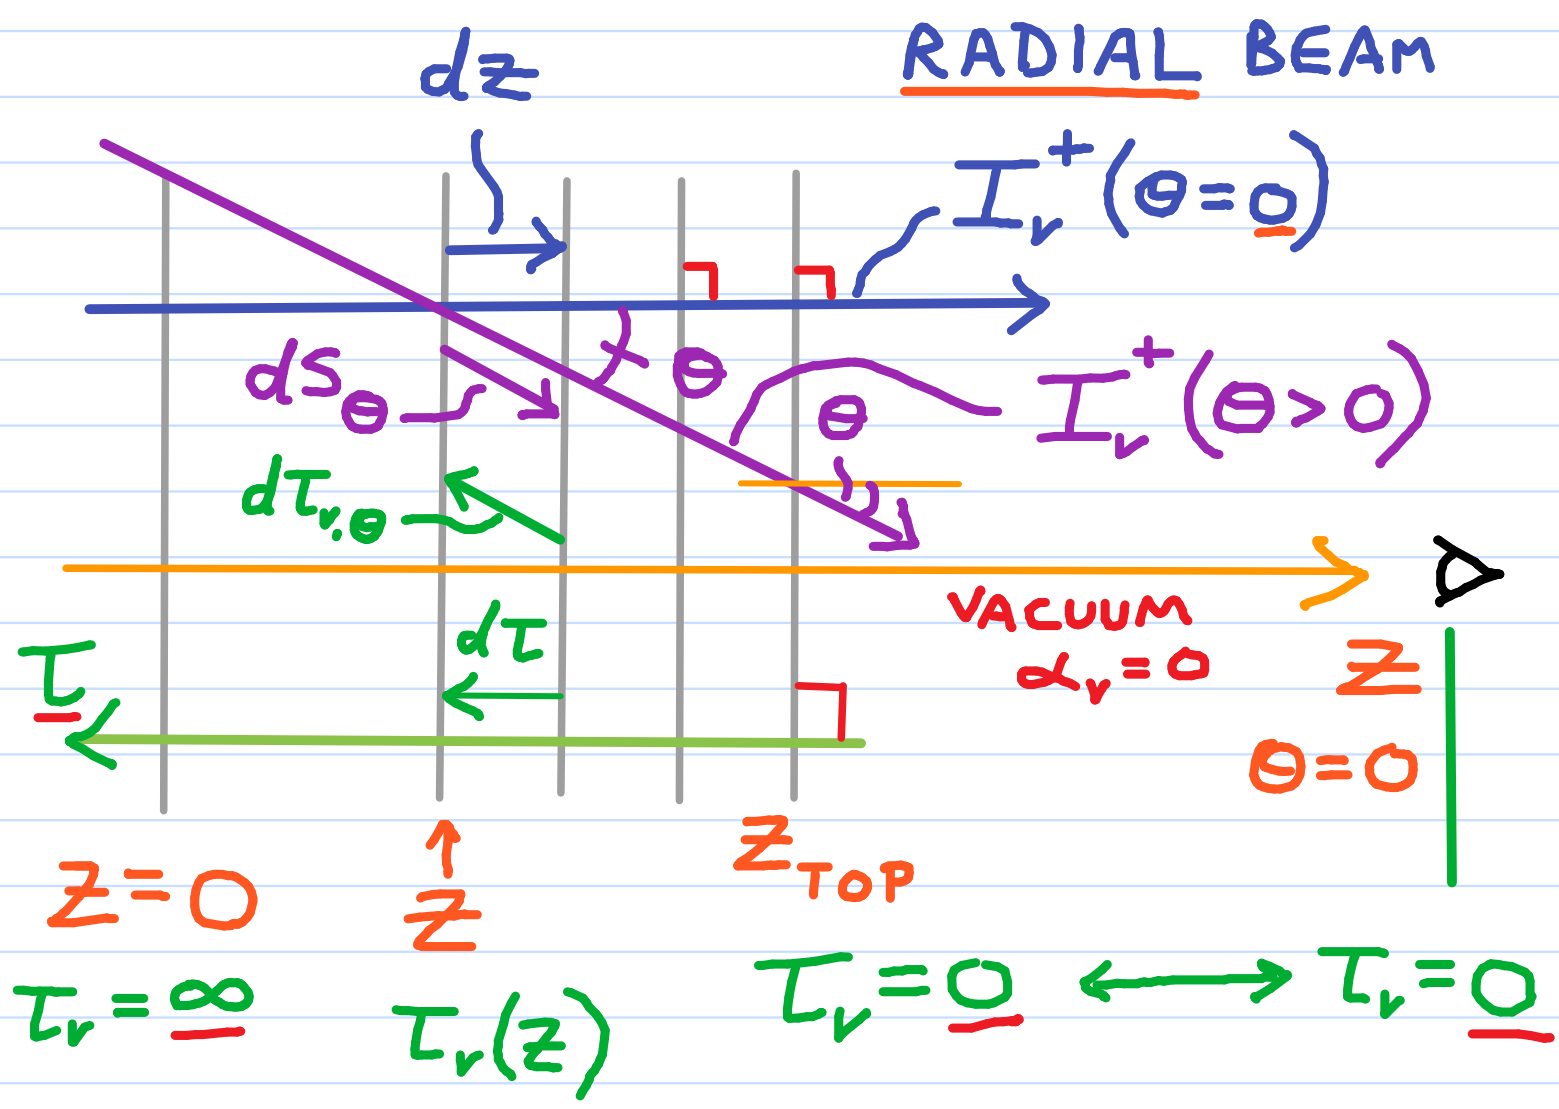 dz
RADIAL BEAM
I_ν^+(θ=0)
dS_θ
θ
θ
I_ν^+(θ>0)
dτ_ν,θ
dτ
VACUUM
α_ν=0
τ
z
θ=0
z=0
z
z_TOP
τ_ν=∞
τ_ν(z)
τ_ν=0 ↔ τ_ν=0